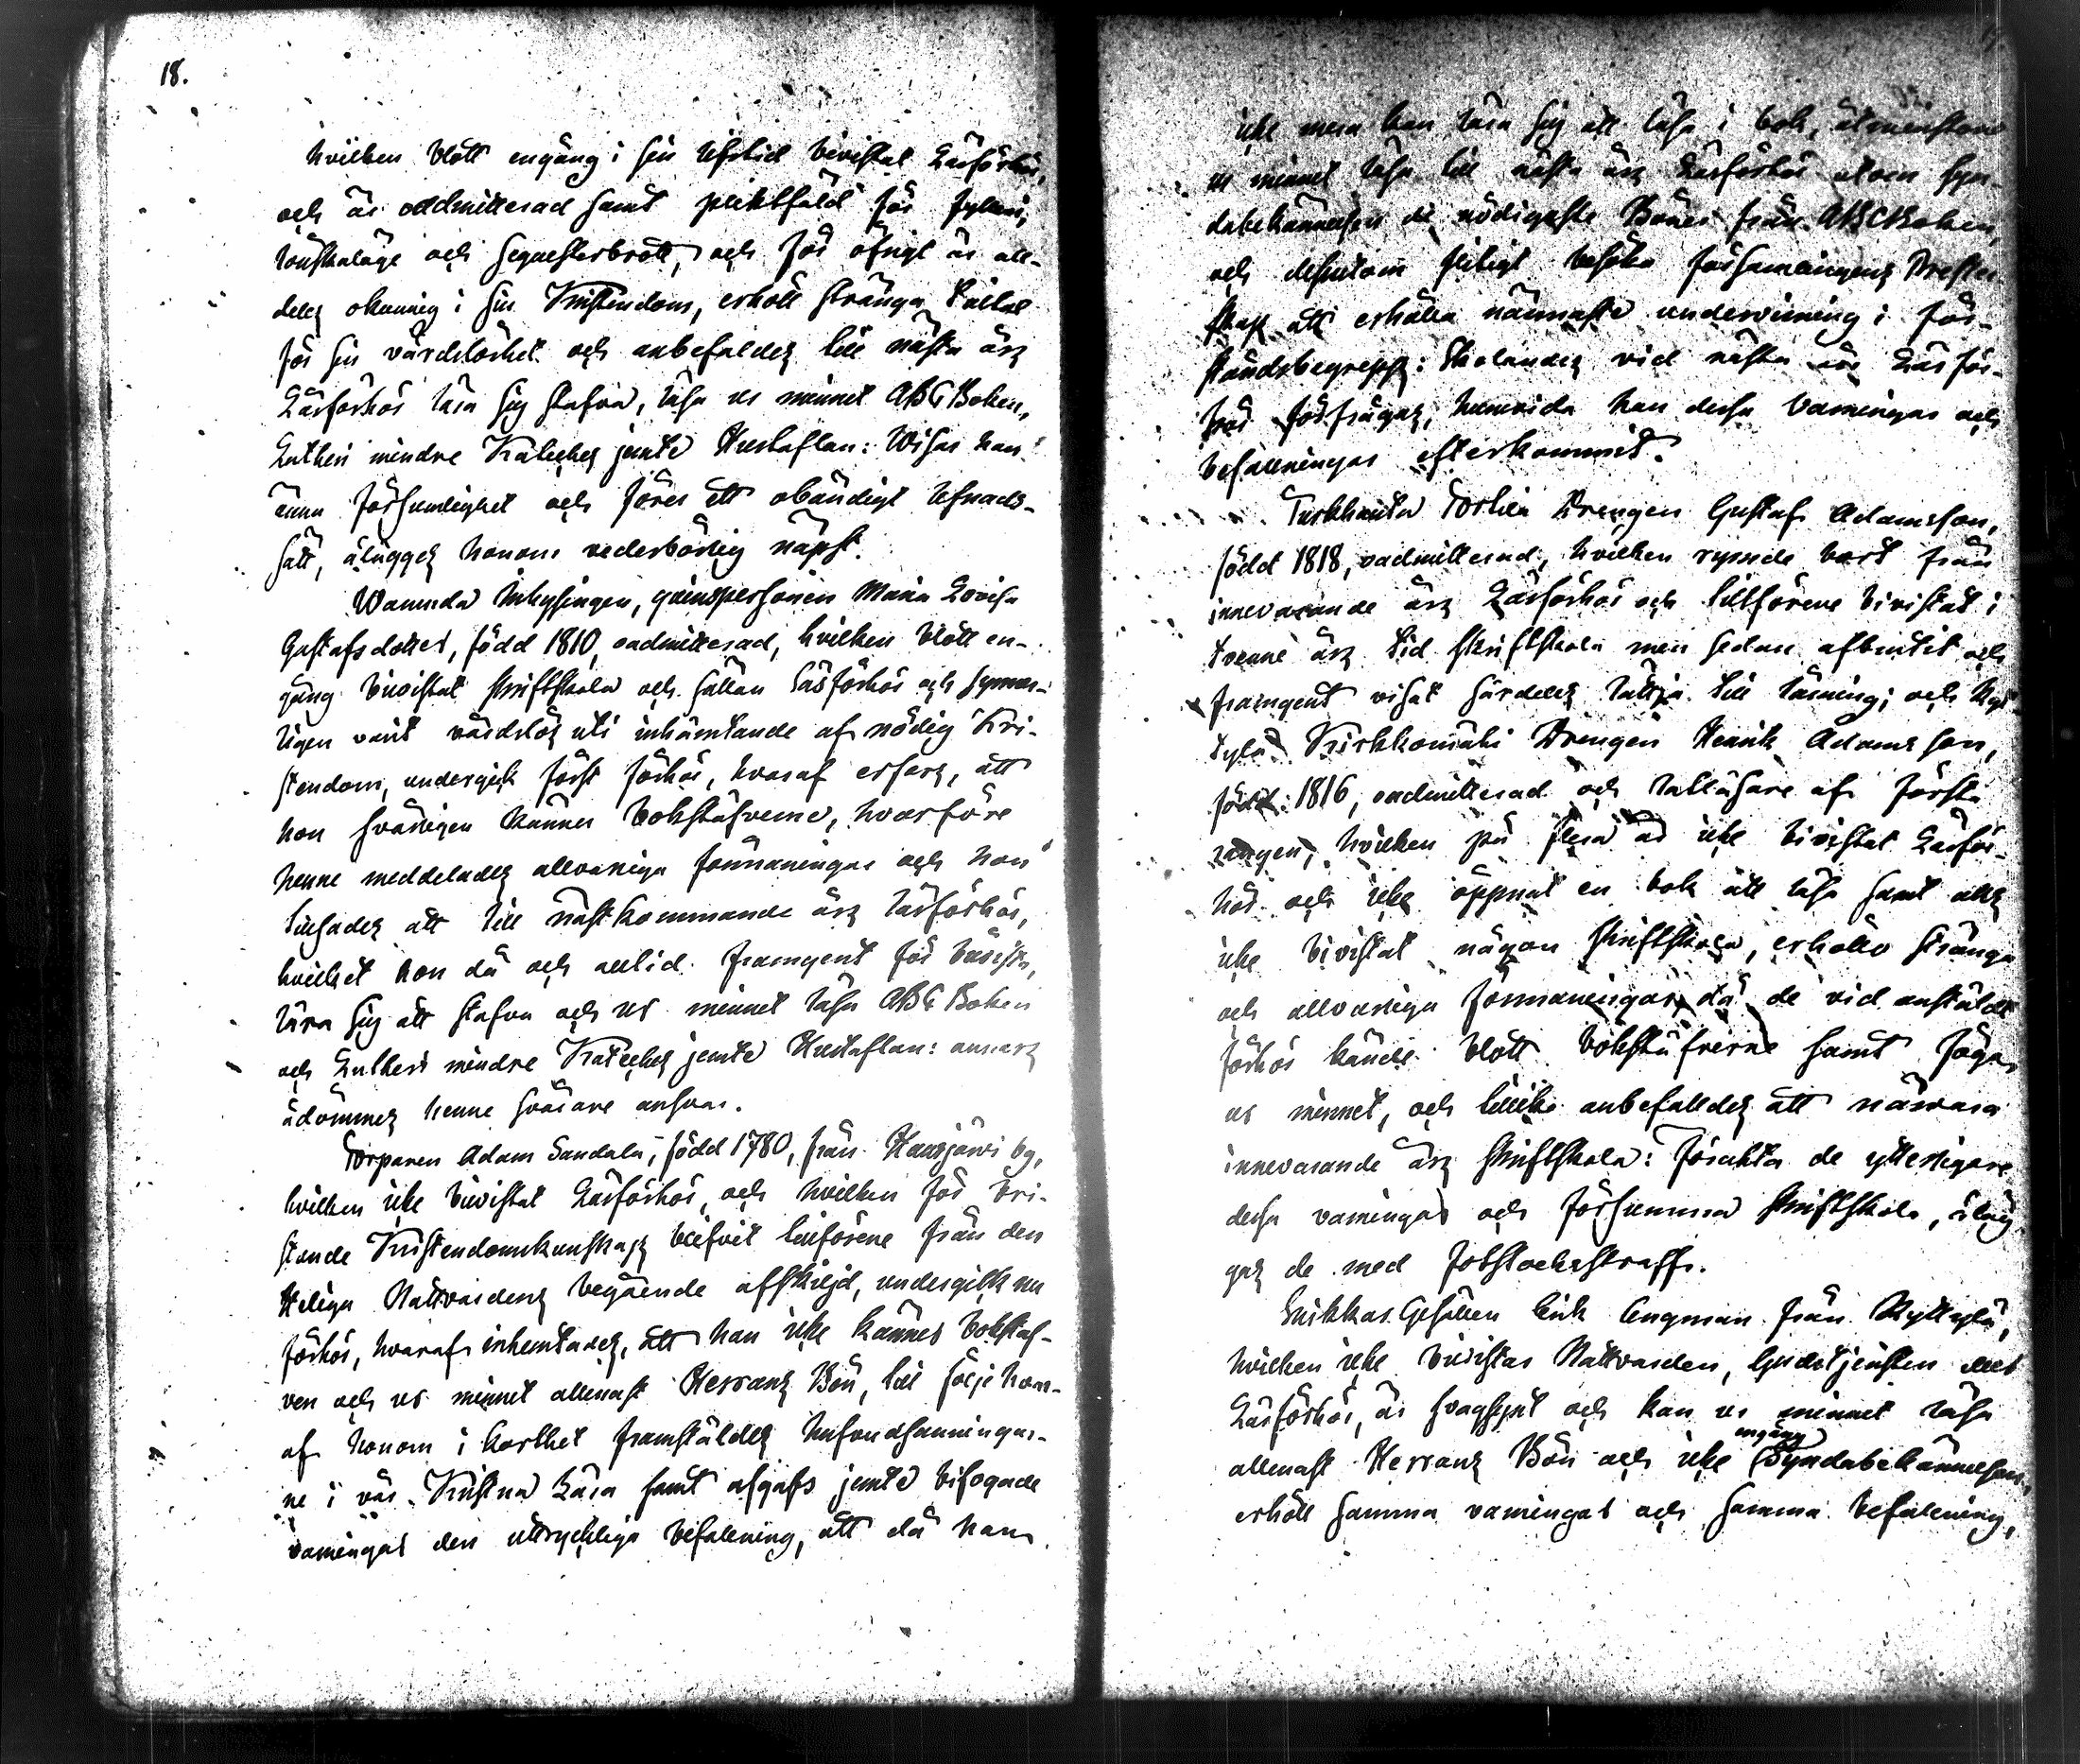 18.
hvilken blott engång i sin lifstid bivistat Läsförhör,
och är oadmitterad samt pliktfäld för fylleri,
lönskaläge och sequesterbrott, och för öfrigt är all-
deles okunnig i sin Kristendom, erhöll stränga tilltal
för sin vårdslöshet och anbefaldes till nästa års
Läsförhör lära sig stafva, läsa ur minnet ABC Boken,
Lutheri mindre Kateches jemte Hustaflan: Wisar han
ännu försumlighet och förer ett obändigt lefnads-
sätt, ålägges honom vederbörlig näpst.
Wanunda Inhysingen, qvinspersonen Maria Lovisa
Gustafsdotter, född 1810, oadmitterad, hvilken blott en-
gång bivistat skriftskola och sällan Läsförhör och synner-
ligen varit vårdslös uti inhämtande af nödig Kri-
stendom, undergick först förhör, hvaraf erfors, att
hon svårligen känner bokstäfverne, hvarföre
henne meddelades allvarliga förmaningar och hon
tillsades att till nästkommande års läsförhör,
hvilket hon då och alltid framgent bör bivista,
lära sig att stafva och ur minnet läsa ABC Boken
och Lutheri mindre Kateches jemte Hustaflan: annars
ådömmes henne svårare ansvar.
Torparen Adam Sandala, född 1780, från Hausjärvi by,
hvilken icke bivistat Läsförhör, och hvilken för bri-
stande Kristendomskunskap blifvit tillförene från den
Heliga Nattvardens begående afskiljd, undergick nu
förhör, hvaraf inhemtades, att han icke känner bokstäf-
ven och ur minnet allenast Herrans Bön, till följe hvar-
af honom i korthet framställdes hufvudsanningar-
ne i vår Kristna Lära samt afgafs jemte bifogade
varningar den uttryckliga befallning, att då han
icke mera kan lära sig att läsa i bok, åtminstone
ur minnet läsa till nästa års Läsförhör utom Syn-
dabekännelsen de nödigaste Böner från ABC Boken,
och dessutom flitigt besöka församlingens Prester-
skap att erhålla närmaste undervisning i för-
ståndsbegrepp: Skolandes vid nästa års Läsför-
hör förfrågas, huruvida han dessa varningar och
befallningar efterkommit.
Turkhauta Torka Drengen Gustaf Adamsson,
född 1818, oadmitterad, hvilken rymde bort från
innevarande års Läsförhör och tillförene bivistat i
trenne års tid skriftskola men sedan afbrutit och
framgent visat särdeles lättja till läsning; och Ryt-
tylä Kirkkomäki Drengen Henrik Adamsson,
född 1816, oadmitterad och lallläsare af första
rangen, hvilken på flera år icke bivistat Läsför-
hör och icke öppnat en bok att läsa samt alls
icke bivistat någon skriftskola, erhöllo stränga
och allvarliga förmaningar, då de vid anstäldt
förhör kände blott bokstäfverne samt föga
ur minnet, och tillika anbefalldes att närvara
innevarande års skriftskola: Förakta de ytterligare
dessa varningar och försumma skriftskola, åläg-
gas de med fotstocksstraff.
Erikkas Gesällen Erik Engman från Ryttylä,
hvilken icke bivistar Nattvarden, Gudstjensten eller
Läsförhör, är svagsynt och kan ur minnet läsa
engång
allenast Herrans Bön och icke Syndabekännelsen,
erhöll samma varningar och samma befallning,